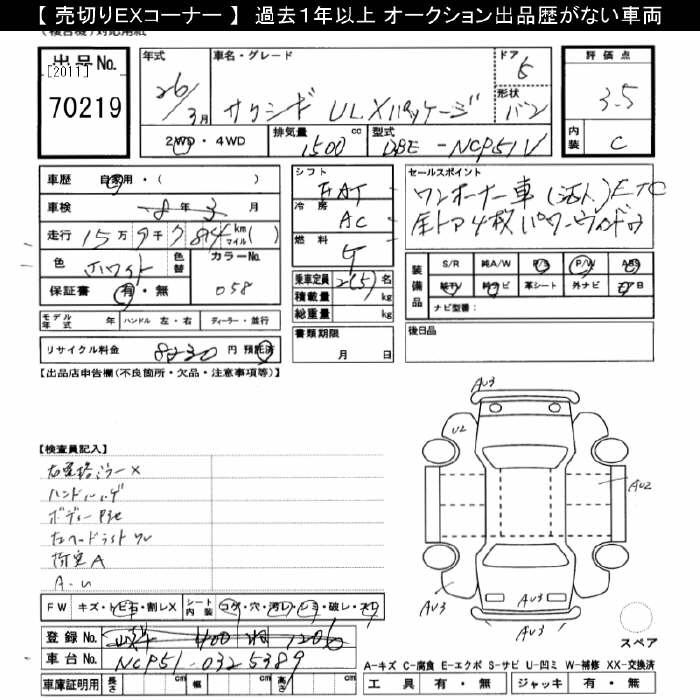 【 売切りEXコーナー 】 過去1年以上 オークション出品歴がない車両
出品No.
[2011]
70219
年式 車名・グレード ドア 5
26/3月 サクシード ULXパッケージ 形状 バン
2WD・4WD 排気量 1500 cc 型式 DBE-NCP51V
評価点
3.5
内装 C
車歴 自家用・( )
車検 8年 3月
走行 15万9千7814 km マイル( )
色 ホワイト 色替 カラーNo.
保証書 有・無 058
モデル年式 年 ハンドル 左・右 ディーラー・並行
リサイクル料金 8230円 預託済
シフト FAT
冷房 AC
燃料 G
乗車定員 2(5)名
積載量 kg
総重量 kg
書類期限
月 日
セールスポイント
ワンオーナー車(法人)ETC
全ドア4枚パワーウィンドウ
装備品 S/R 純A/W P/S P/W ABS
純TV 純ナビ 革シート 外ナビ エアB
ナビ型番:
後日品
【出品店申告欄(不良箇所・欠品・注意事項等)】
【検査員記入】
ハンドルハゲ
荷室A
A・U
FW キズ・トビ石・割レX シート内装 コゲ・穴・汚レ・シミ・破レ・スレ
登録No.
車台No. NCP51-0325389
車庫証明用 長さ cm 幅 cm 高さ cm
AU3
U2
AU2
AU3
AU3
AU3
AU3
スペア
A-キズ C-腐食 E-エクボ S-サビ U-凹ミ W-補修 XX-交換済
工具 有・無 ジャッキ 有・無